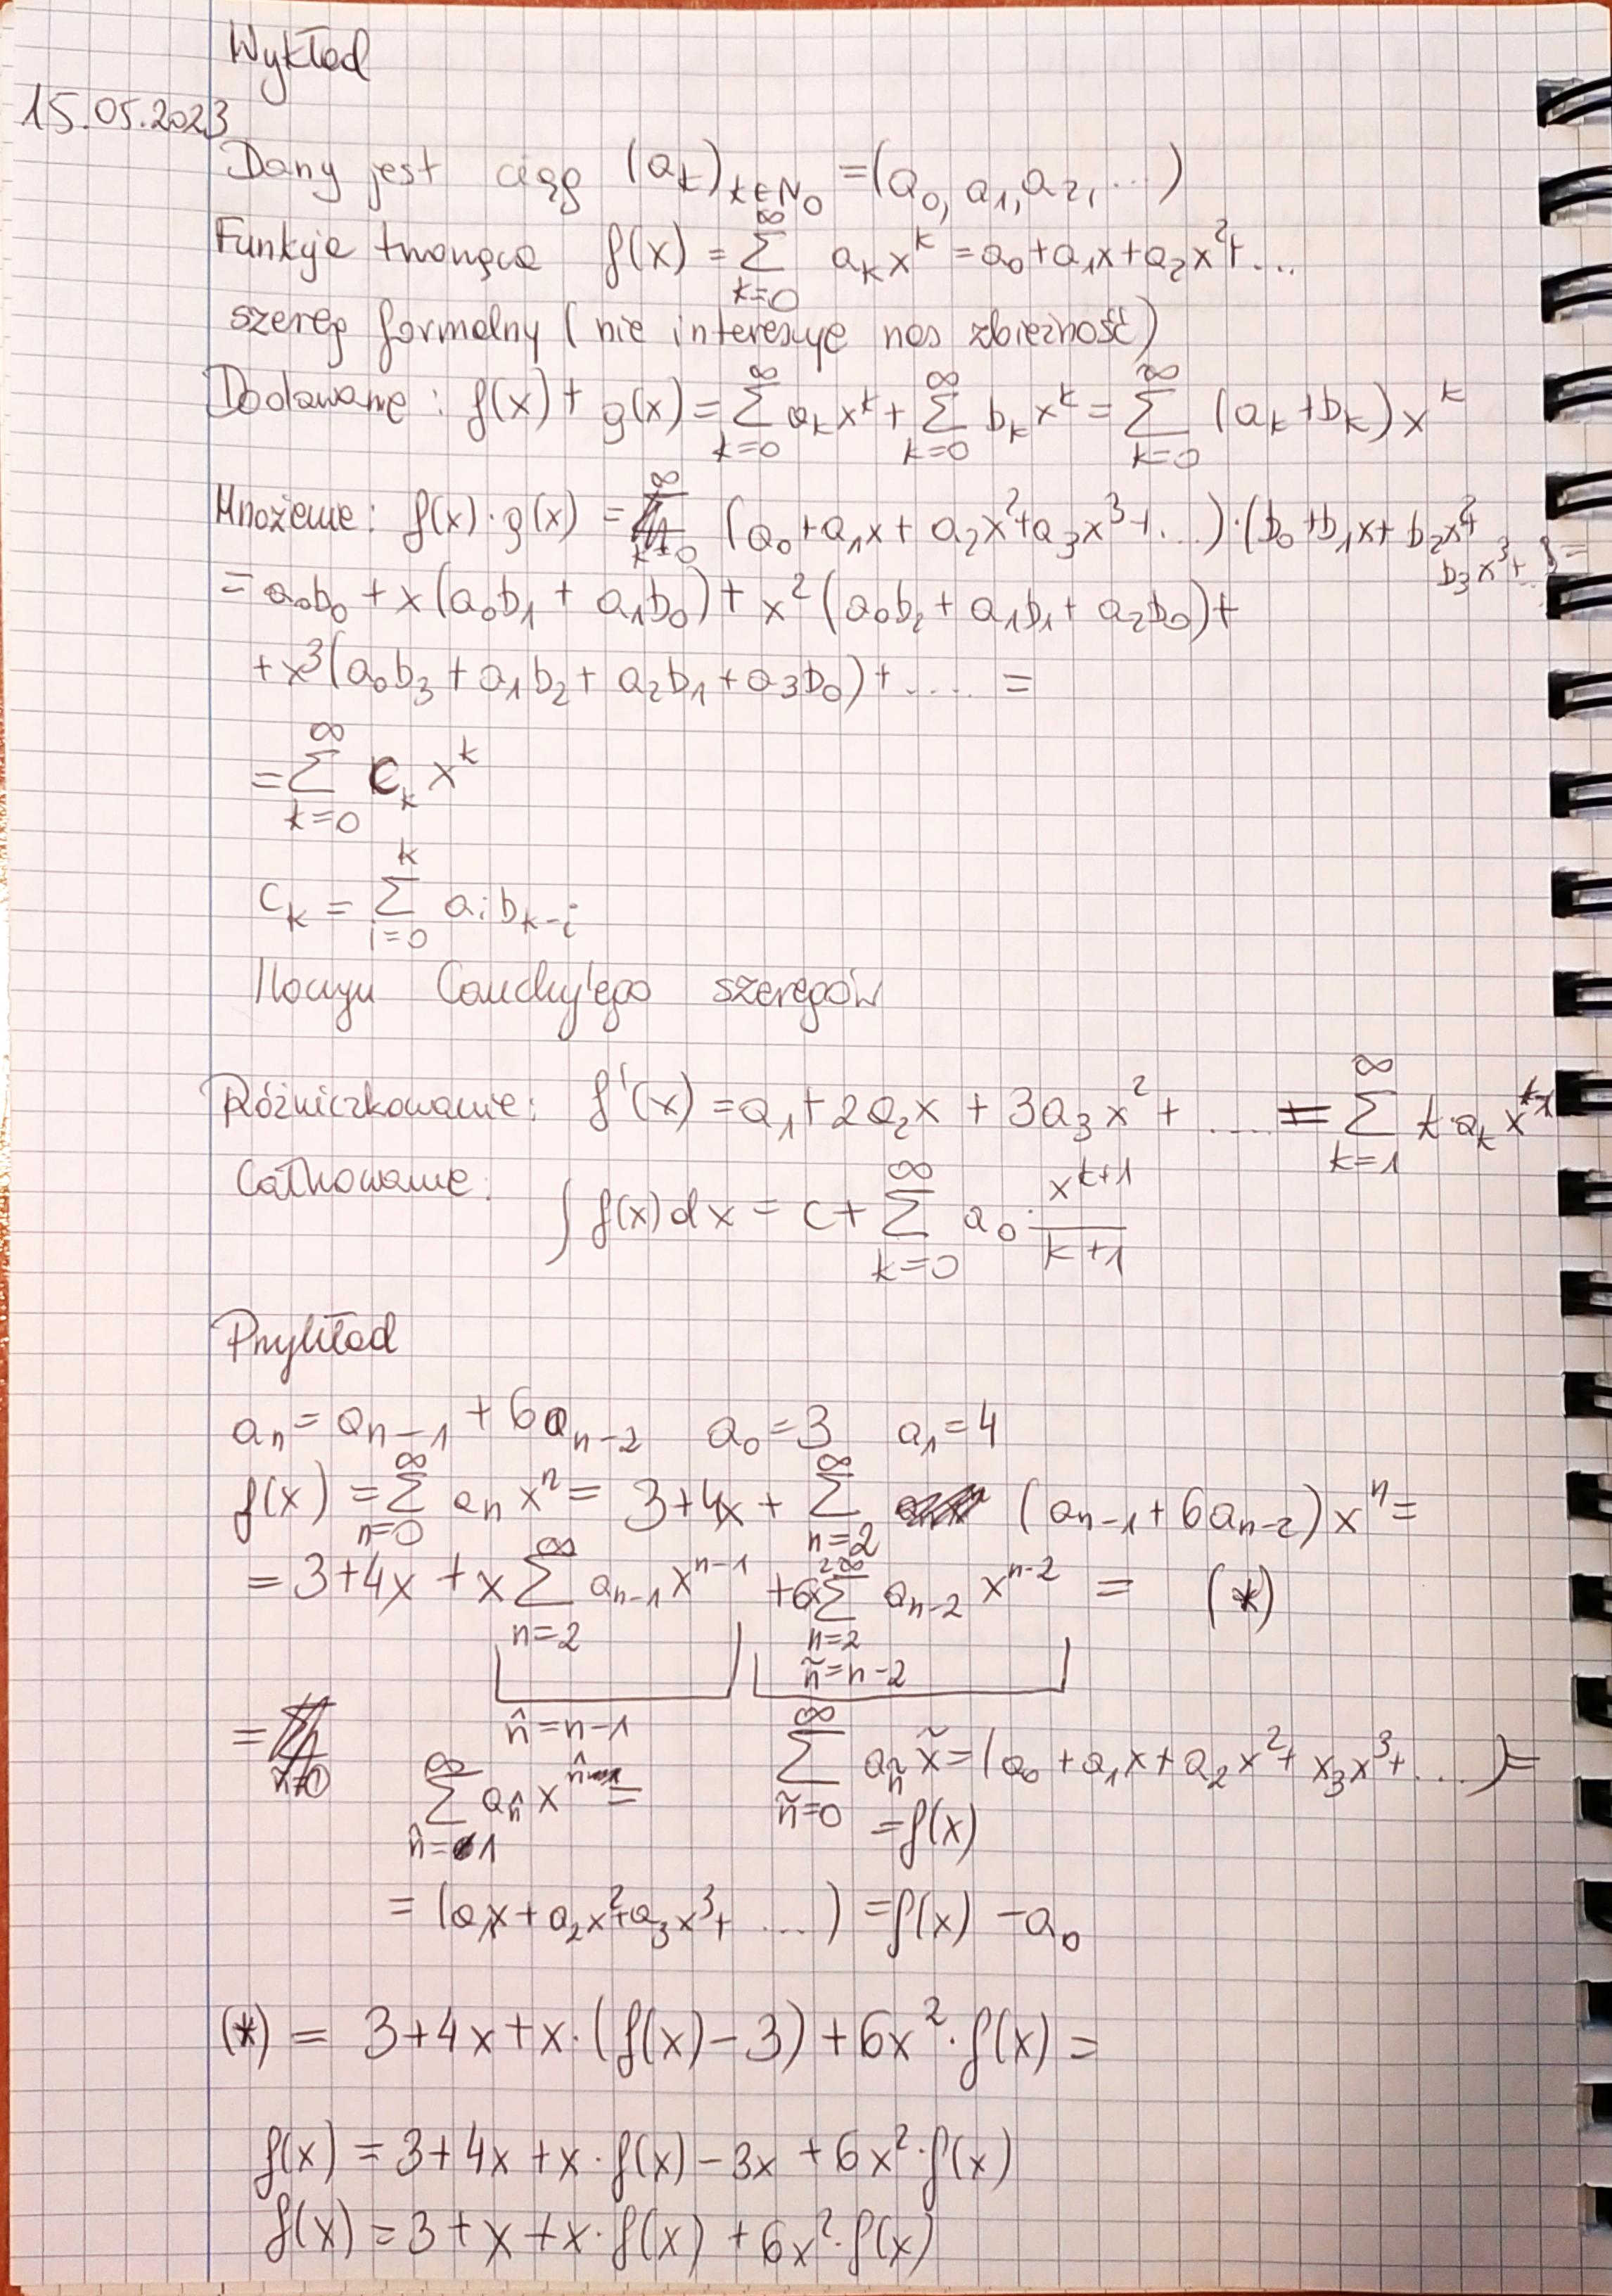 Wykład
15.05.2023
Dany jest ciąg (a_k)_{k∈N_0} = (a_0, a_1, a_2, ...)
Funkcja tworząca f(x) = ∑_{k=0}^{∞} a_k x^k = a_0 + a_1x + a_2x^2 + ...
szereg formalny (nie interesuje nas zbieżność)
Dodawanie: f(x) + g(x) = ∑_{k=0}^{∞} a_k x^k + ∑_{k=0}^{∞} b_k x^k = ∑_{k=0}^{∞} (a_k + b_k) x^k
Mnożenie: f(x)·g(x) = (a_0 + a_1x + a_2x^2 + a_3x^3 + ...)·(b_0 + b_1x + b_2x^2 + b_3x^3 + ...) =
= a_0b_0 + x(a_0b_1 + a_1b_0) + x^2(a_0b_2 + a_1b_1 + a_2b_0) +
+ x^3(a_0b_3 + a_1b_2 + a_2b_1 + a_3b_0) + .... =
= ∑_{k=0}^{∞} c_k x^k
c_k = ∑_{i=0}^{k} a_i b_{k-i}
Iloczyn Cauchy'ego szeregów
Różniczkowanie: f'(x) = a_1 + 2a_2x + 3a_3x^2 + .... = ∑_{k=1}^{∞} k·a_k x^{k-1}
Całkowanie: ∫ f(x)dx = c + ∑_{k=0}^{∞} a_0 · \frac{x^{k+1}}{k+1}
Przykład
a_n = a_{n-1} + 6a_{n-2} a_0 = 3 a_1 = 4
f(x) = ∑_{n=0}^{∞} a_n x^n = 3+4x + ∑_{n=2}^{∞} (a_{n-1} + 6a_{n-2}) x^n =
= 3+4x + x ∑_{n=2}^{∞} a_{n-1} x^{n-1} + 6x^2 ∑_{n=2}^{∞} a_{n-2} x^{n-2} = (*)
ñ = n-2
=
n̂ = n-1
∑_{ñ=0}^{∞} a_ñ x^~ = (a_0 + a_1x + a_2x^2 + x_3x^3 + ....) =
∑_{n̂=1}^{∞} a_n̂ x^n̂ =
= f(x)
= (a_1x + a_2x^2 + a_3x^3 + ...) = f(x) - a_0
(*) = 3+4x + x·(f(x) - 3) + 6x^2·f(x) =
f(x) = 3+4x + x·f(x) - 3x + 6x^2·f(x)
f(x) = 3 + x + x·f(x) + 6x^2·f(x)